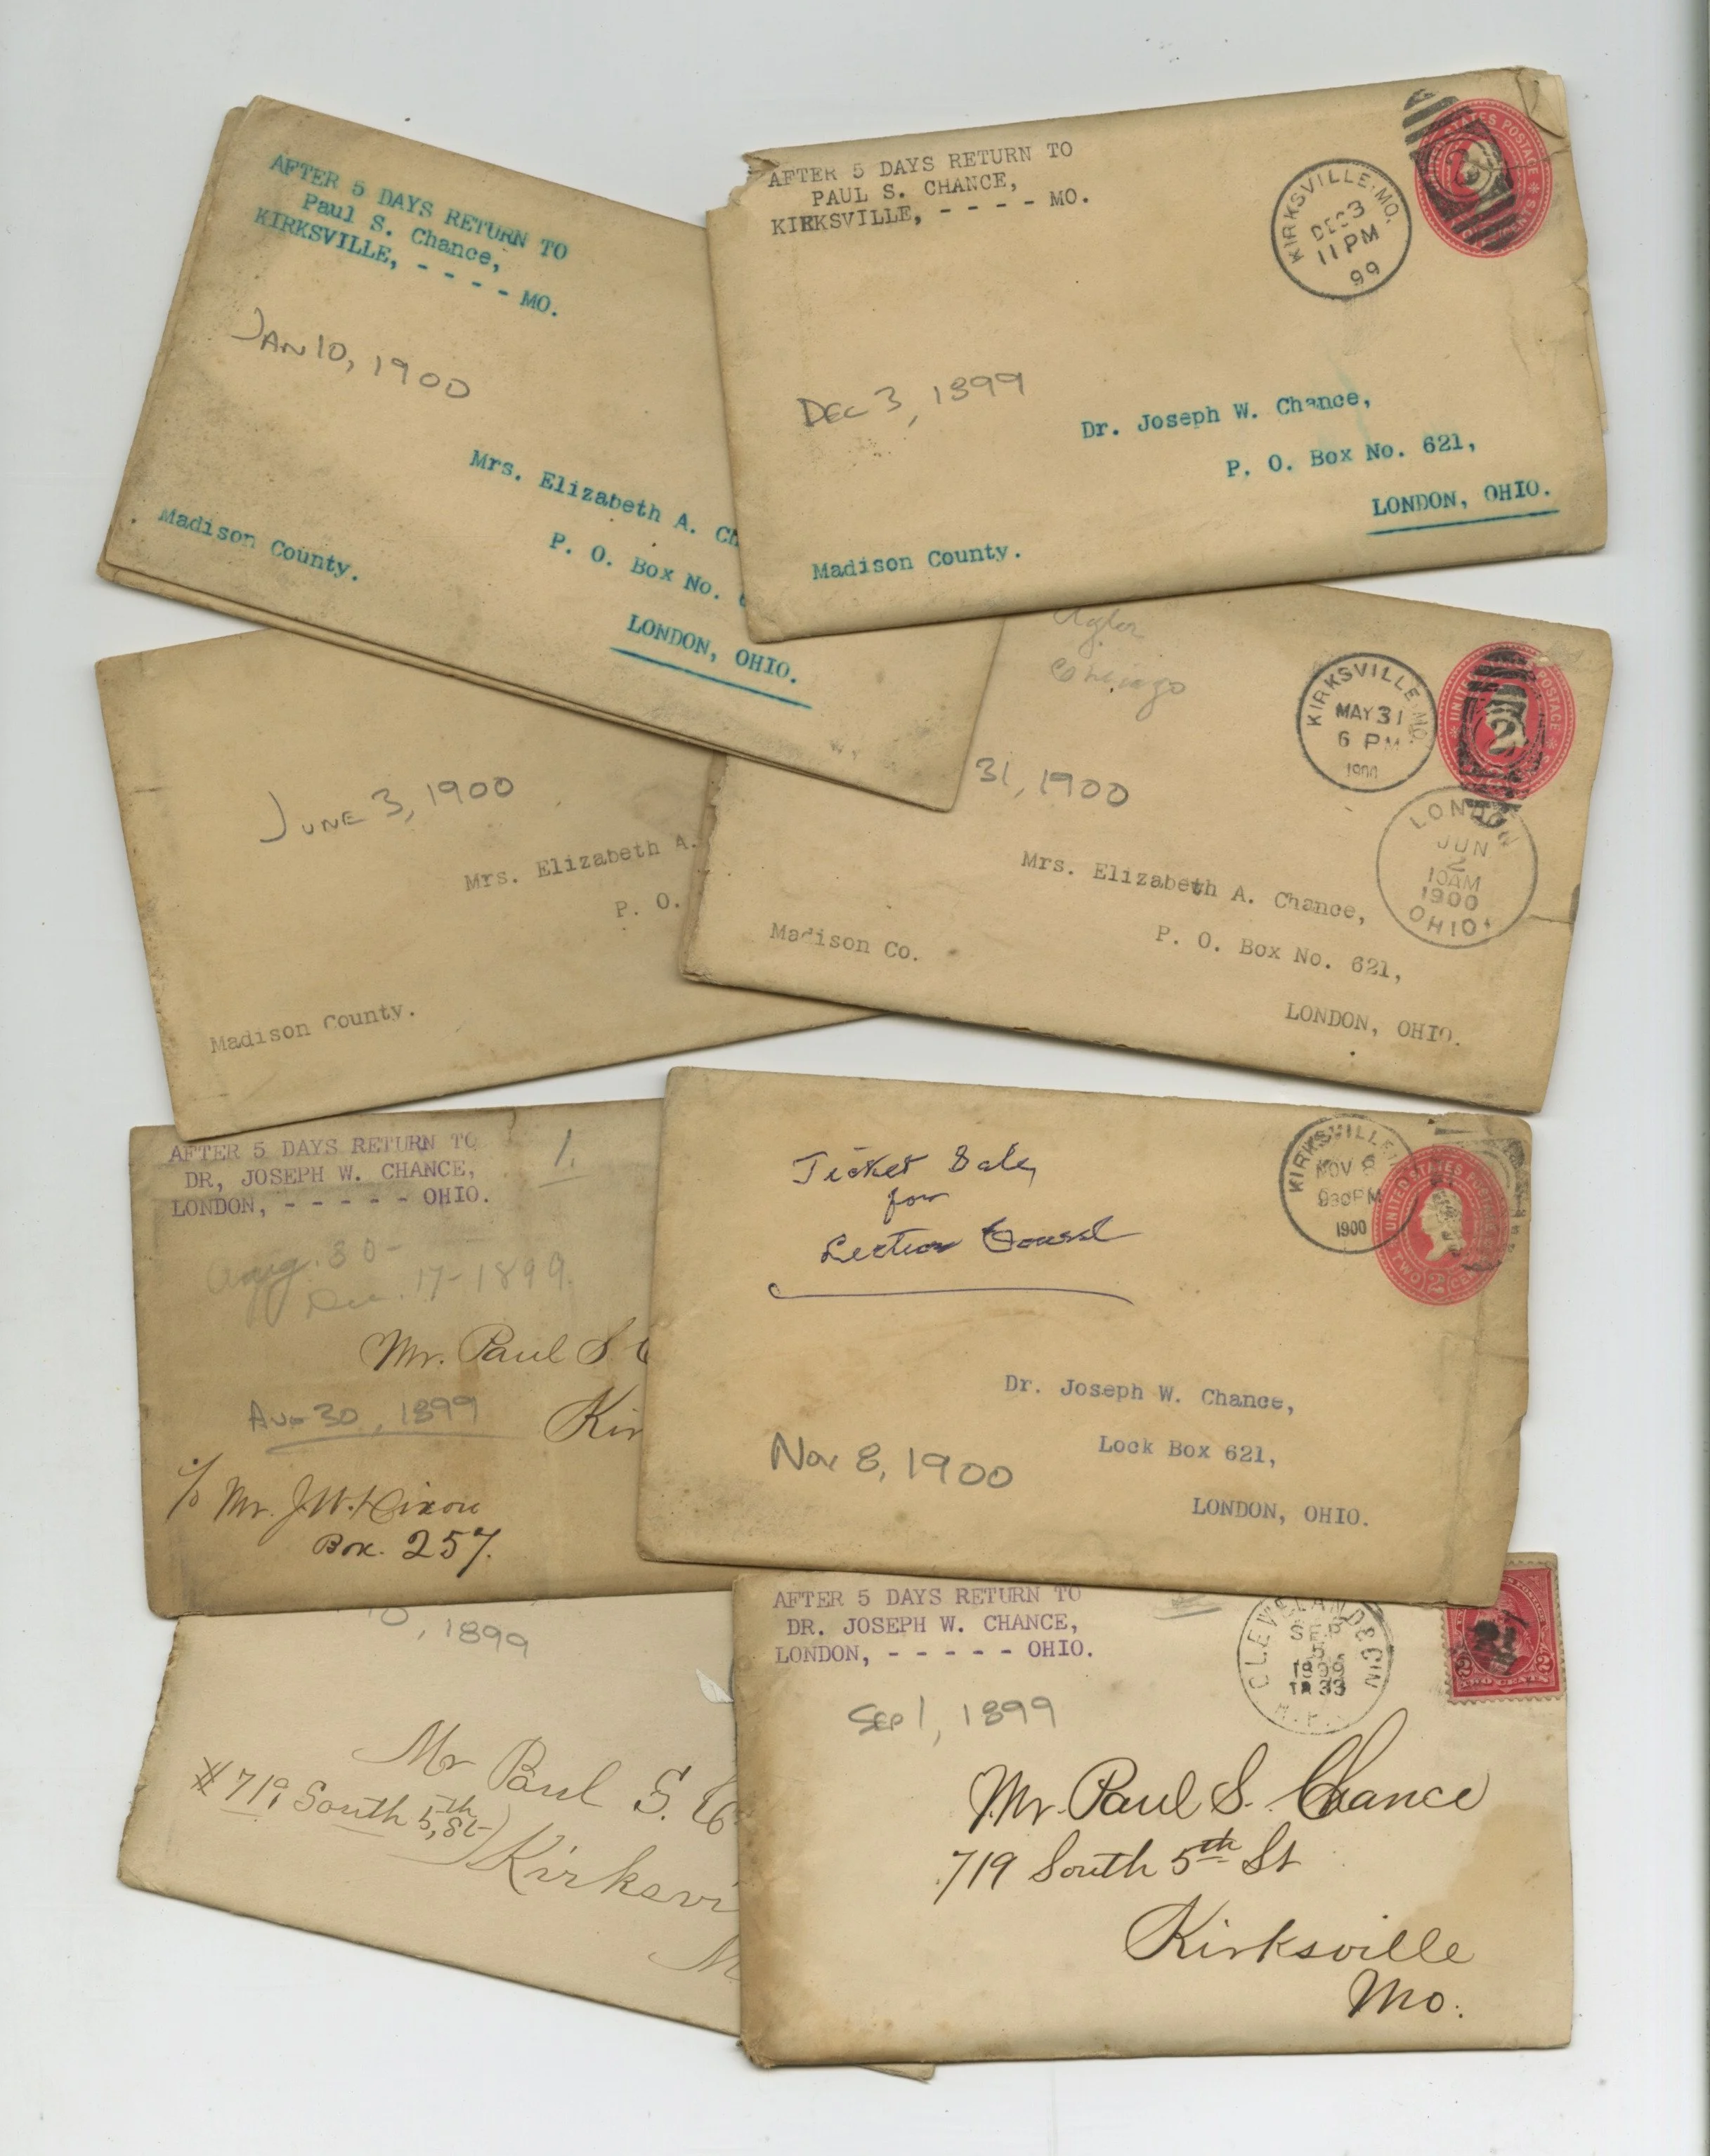 AFTER 5 DAYS RETURN TO
Paul S. Chance,
KIRKSVILLE, - - - - MO.
JAN 10, 1900
Mrs. Elizabeth A. Ch
P. O. Box No. 6
Madison County.
LONDON, OHIO.
AFTER 5 DAYS RETURN TO
PAUL S. CHANCE,
KIRKSVILLE, - - - - MO.
KIRKSVILLE, MO.
DEC 3
11 PM
99
STATES POSTAGE
DEC 3, 1899
Dr. Joseph W. Chance,
P. O. Box No. 621,
LONDON, OHIO.
Madison County.
JUNE 3, 1900
Mrs. Elizabeth A.
P. O.
Madison County.
KIRKSVILLE, MO.
MAY 31
6 PM
1900
POSTAGE
2
31, 1900
LONDON
JUN
2
10AM
1900
OHIO
Mrs. Elizabeth A. Chance,
P. O. Box No. 621,
Madison Co.
LONDON, OHIO.
AFTER 5 DAYS RETURN TO
DR, JOSEPH W. CHANCE,
LONDON, - - - - - OHIO.
1.
Aug. 30-
Dec. 17-1899.
Mr. Paul S. C
Kir
AUG 30, 1899
c/o Mr. J. W. Dixon
Box. 257.
Ticket Sale
for
Lecture
KIRKSVILLE
NOV 8
930PM
1900
UNITED STATES POSTAGE
TWO 2 CE
Dr. Joseph W. Chance,
Lock Box 621,
LONDON, OHIO.
Nov 8, 1900
10, 1899
Mr Paul S. C
#719 South 5th St
Kirksvi
M
AFTER 5 DAYS RETURN TO
DR. JOSEPH W. CHANCE,
LONDON, - - - - - OHIO.
CLEVELAND & CIN
SEP
5
1899
R.P.
2 2
SEP 1, 1899
Mr. Paul S. Chance
719 South 5th St
Kirksville
Mo.